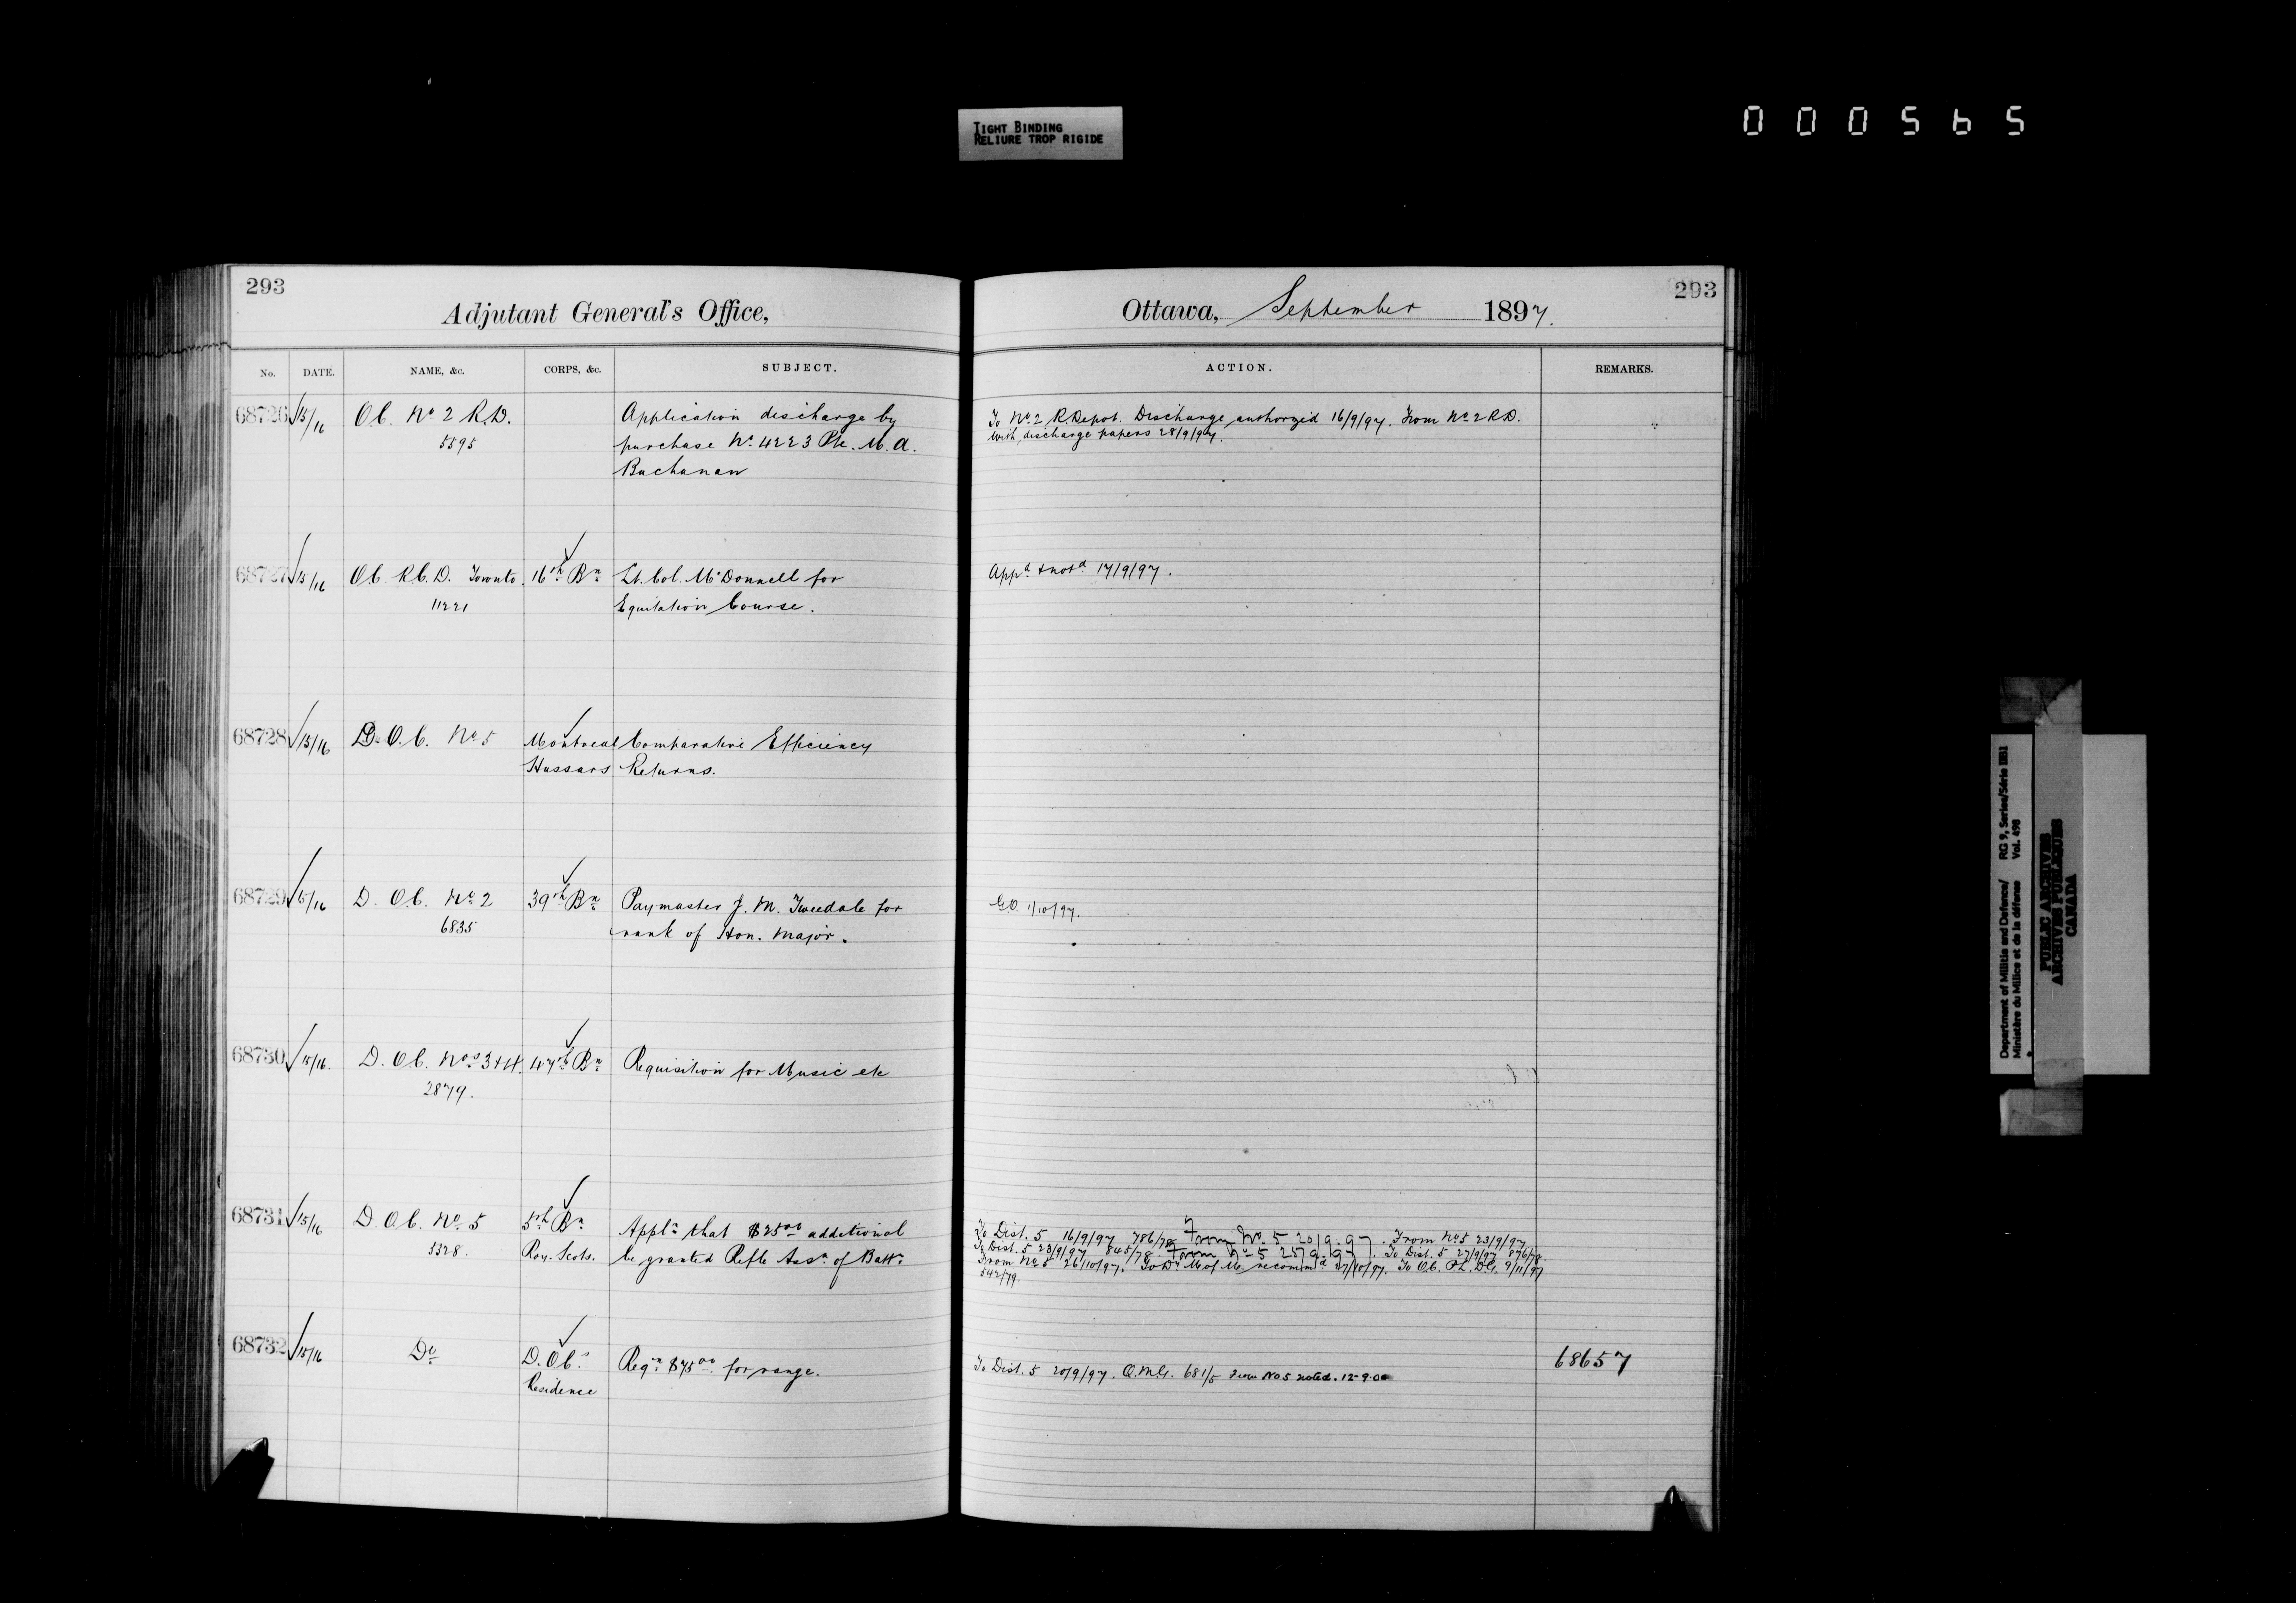 TIGHT BINDING
RELIURE TROP RIGIDE
000565
293
Adjutant General's Office,
No. DATE. NAME, &c. CORPS, &c. SUBJECT.
68726 15/16 O.C. No 2 R.D. Application discharge by
5595 purchase No 4223 Pte. M. A.
Buchanan
68727 15/16 O.C. R.C.D. Toronto. 16th Bn Lt. Col. McDonnell for
11221 Equitation Course.
68728 15/16 D.O.C. No 5 Montreal Comparative Efficiency
Hussars Returns.
68729 15/16 D.O.C. No 2 39th Bn Paymaster J. M. Tweedale for
6835 rank of Hon. Major.
68730 15/16. D.O.C. Nos 3+4. 47th Bn Requisition for Music etc
2879.
68731 15/16 D.O.C. No 5 5th Bn Appln that $25.00 additional
5328. Roy. Scots. be granted Rifle Assn of Battn
68732 15/16 Do D.O.C.'s Reqn $75.00 for range.
Residence
293
Ottawa, September 1897.
ACTION. REMARKS.
To No 2 R. Depot. Discharge authorized 16/9/97. From No 2 R.D.
with discharge papers 28/9/97.
Appd & notd 17/9/97.
G.O. 1/10/97.
To Dist. 5 16/9/97 786/78 From No. 5 20/9.97. From No 5 23/9/97
To Dist. 5 23/9/97 845/78. From No 5 25/9.97. To Dist. 5 27/9/97 876/78.
From No 5 26/10/97. To Dn M of M recommd 27/10/97. To O.C. P.L.D.G. 9/11/97
542/79.
To Dist. 5 20/9/97. Q.M.G. 681/5 From No 5 noted. 12-9-0 68657
Department of Militia and Defence/ RG 9, Series/Série IIB1
Ministère du Milice et de la défense Vol. 498
PUBLIC ARCHIVES
ARCHIVES PUBLIQUES
CANADA